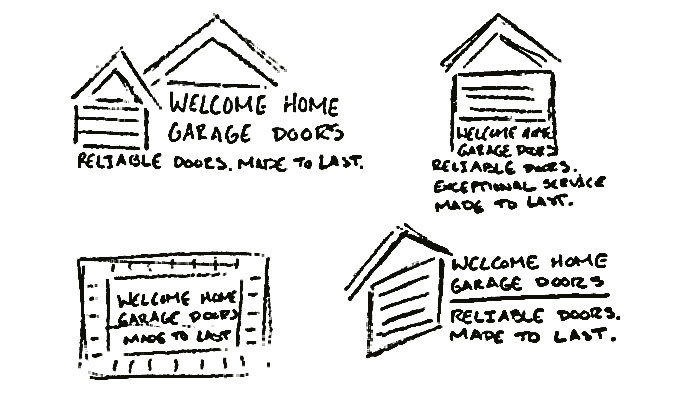 WELCOME HOME
GARAGE DOORS
RELIABLE DOORS. MADE TO LAST.
WELCOME HOME
GARAGE DOORS
RELIABLE DOORS.
EXCEPTIONAL SERVICE
MADE TO LAST.
WELCOME HOME
GARAGE DOORS
MADE TO LAST
WELCOME HOME
GARAGE DOORS
RELIABLE DOORS.
MADE TO LAST.